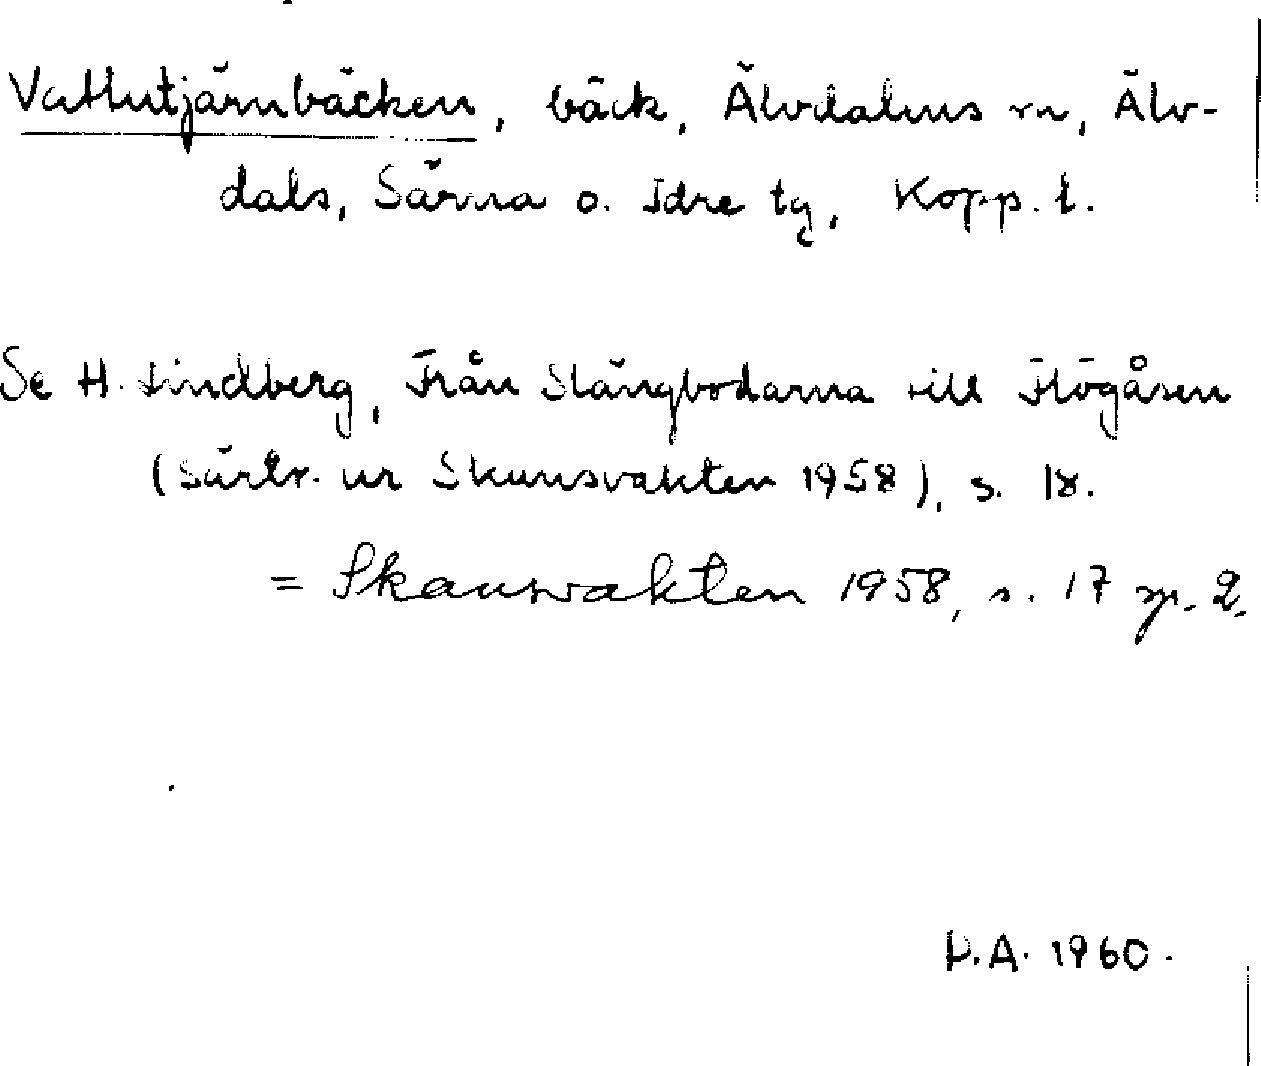 Vattutjärnbäcken, bäck, Älvdalens sn, Älv-
dals, Särna o. Idre tg, Kopp. l.
Se H. Lindberg, Från Slängbodarna till Högåsen
(Särtr. ur Skansvakten 1958), s. 18.
= Skansvakten 1958, s. 17 sp. 2.
D.A. 1960.